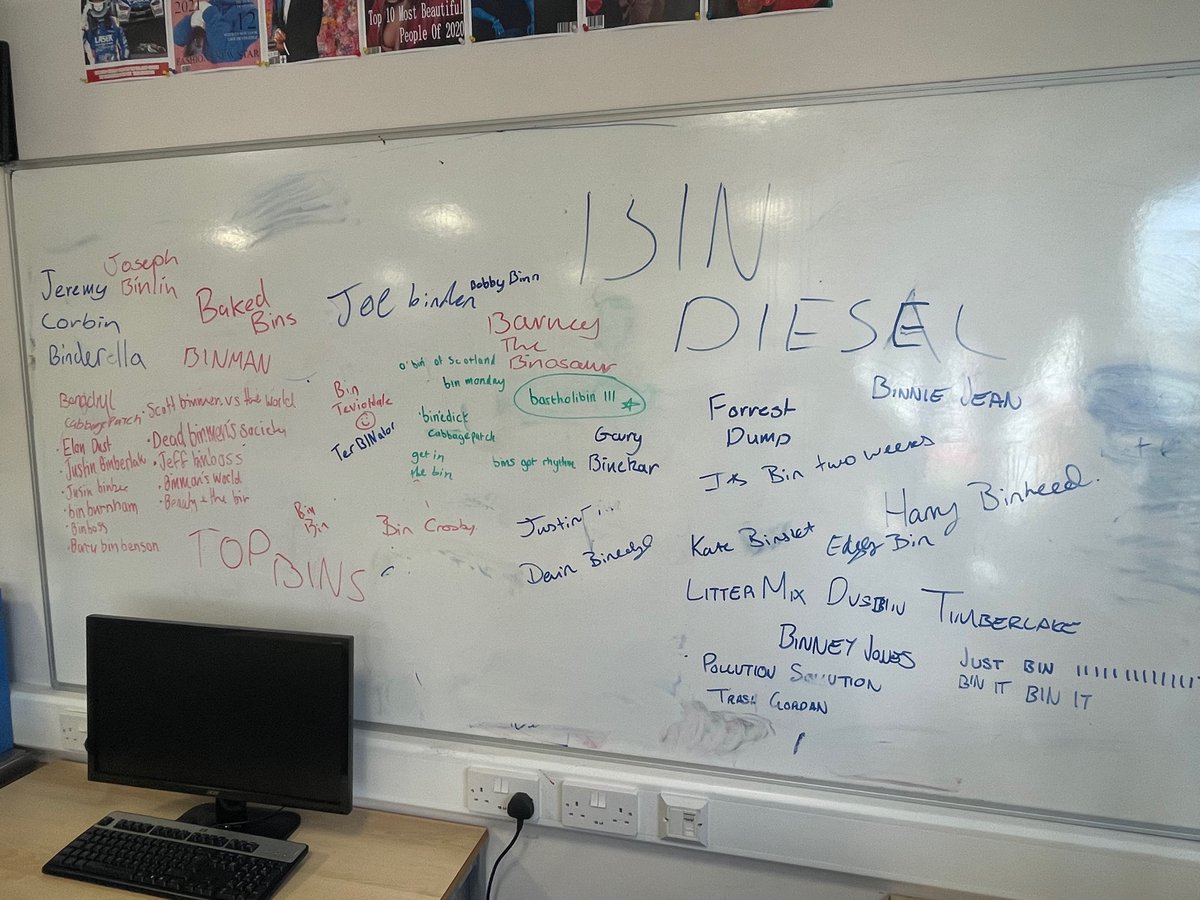 Top 10 Most Beautiful
People Of 2020
BIN
DIESEL
Joseph
Binlin
Jeremy
Corbin
Binderella
Baked
Bins
BINMAN
Joe binden
Bobby Binn
Barney
The
Binosaur
o'bin of Scotland
bin monday
bartholibin III
'binedick
cabbagepatch
get in
the bin
bins got rhythm
Gary
Binekar
Bin
Teviotdale
TerBINator
cabbagepatch
• Elon Dust
• Justin binbee
• bin burnham
• Binboss
• Barry bin benson
• Scott binmen vs the world
• Dead binmen's society
• Jeff binboss
• Binman's World
TOP
BINS
Bin
Bin
Bin Crosby
Justin
Forrest
Dump
BINNIE JEAN
Its Bin two weeks
Harry Binheed.
Kate Binslet
Bin
LITTER MIX
DUSBIN
TIMBERLAKE
BINNEY JONES
JUST BIN
BIN IT BIN IT
POLLUTION SOLUTION
TRASH GORDAN